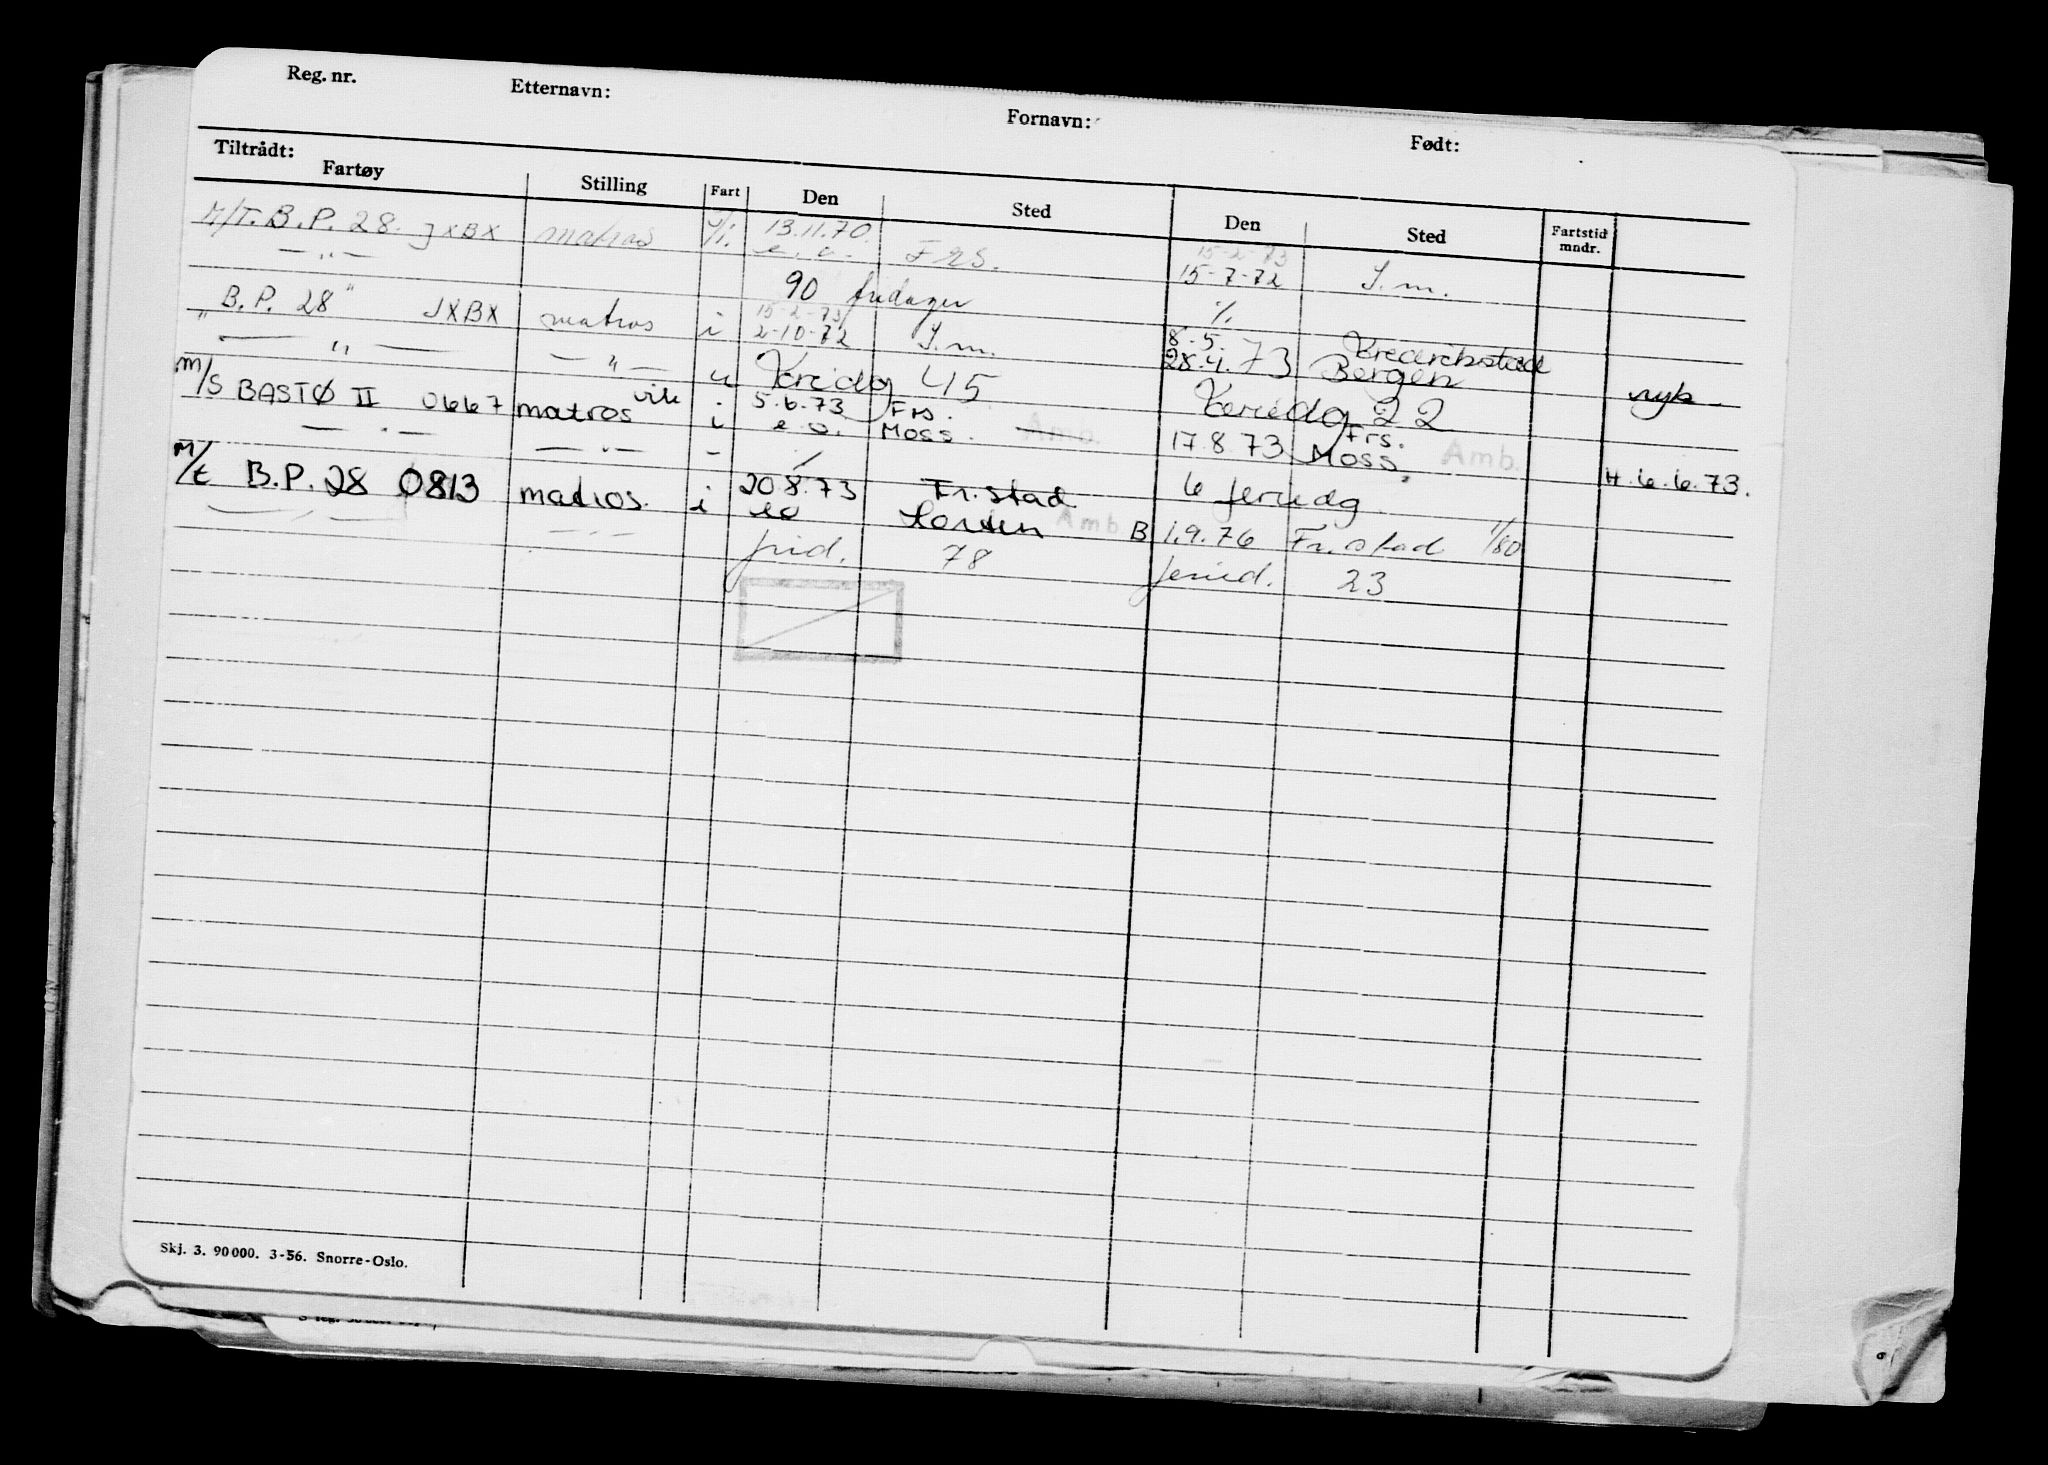 Reg. nr. Etternavn: Fornavn: Født:
Tiltrådt:
Fartøy Stilling Fart Den Sted Den Sted Fartstid mndr.
M/T. B.P. 28. JXBX matros U/i. 13.11.70. 15-2-73
— " — e.o. FRS. 15-7-72 S.m.
90 fridager %
"B.P. 28" JXBX matros i 15-2-73 8.5.
— " — — " — u 2-10-72 S.m. 28.4.73 Bergen
Feriedg 45 Feriedg 22 nyk
M/S BASTØ II 0667 matros vik i 5.6.73 Frs.
— " — — " — - e.o. Moss. Amb. 17.8.73 Frs. Moss. Amb. H. 6.6.73.
M/t B.P. 28 0813 matros. i 20.8.73 Fr.stad 6 feriedg
— " — — " — eo Horten Amb B 1.9.76 Fr.stad 1/80
frid. 78 feried. 23
Skj. 3. 90000. 3-56. Snorre-Oslo.